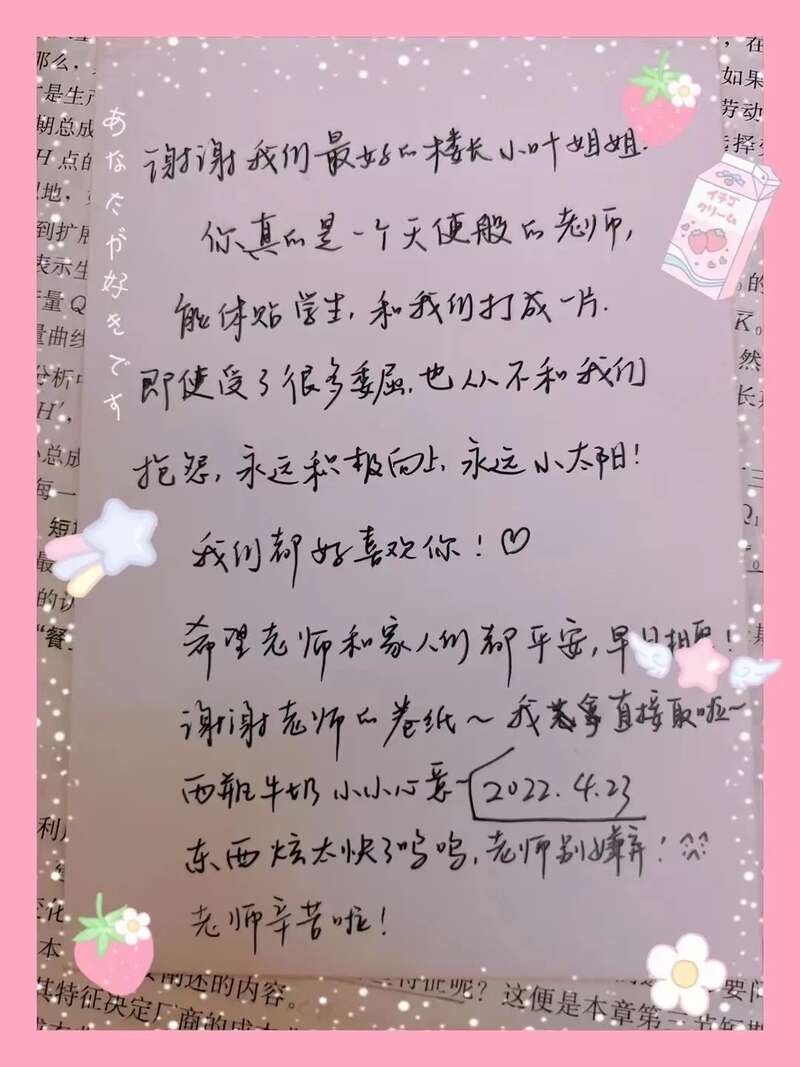 谢谢我们最好的楼长小叶姐姐.
你真的是一个天使般的老师,
能体贴学生,和我们打成一片.
即使受了很多委屈,也从不和我们
抱怨,永远积极向上,永远小太阳!
我们都好喜欢你!♡
希望老师和家人们都平安,早日相见!
谢谢老师的卷纸~我 拿直接取啦~
两瓶牛奶小小心意~
2022.4.23
东西炫太快了呜呜,老师别嫌弃!
老师辛苦啦!
あなたが好きです
イチゴ
クリーム
那么,
是生产
期总成
H 点的
到扩展
表示生
产量 Q
量曲线
分析中
H',
总成
每一
短期
最
的认
“餐
利用
变化
本
阐述的内容。
其特征决定厂商的成本
, 在
如果
劳动
选择
的
K。
然
长期
三
Q₁
特征呢?这便是本章第三节短期
要问